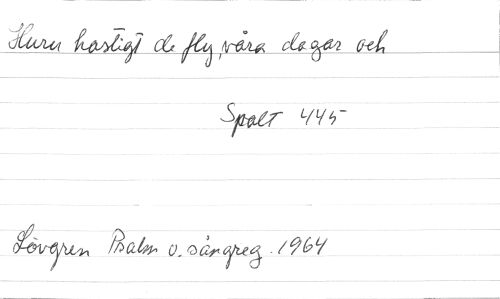 Huru hastigt de fly, våra dagar och
Spalt 445
Lövgren Psalm o. sångreg. 1964